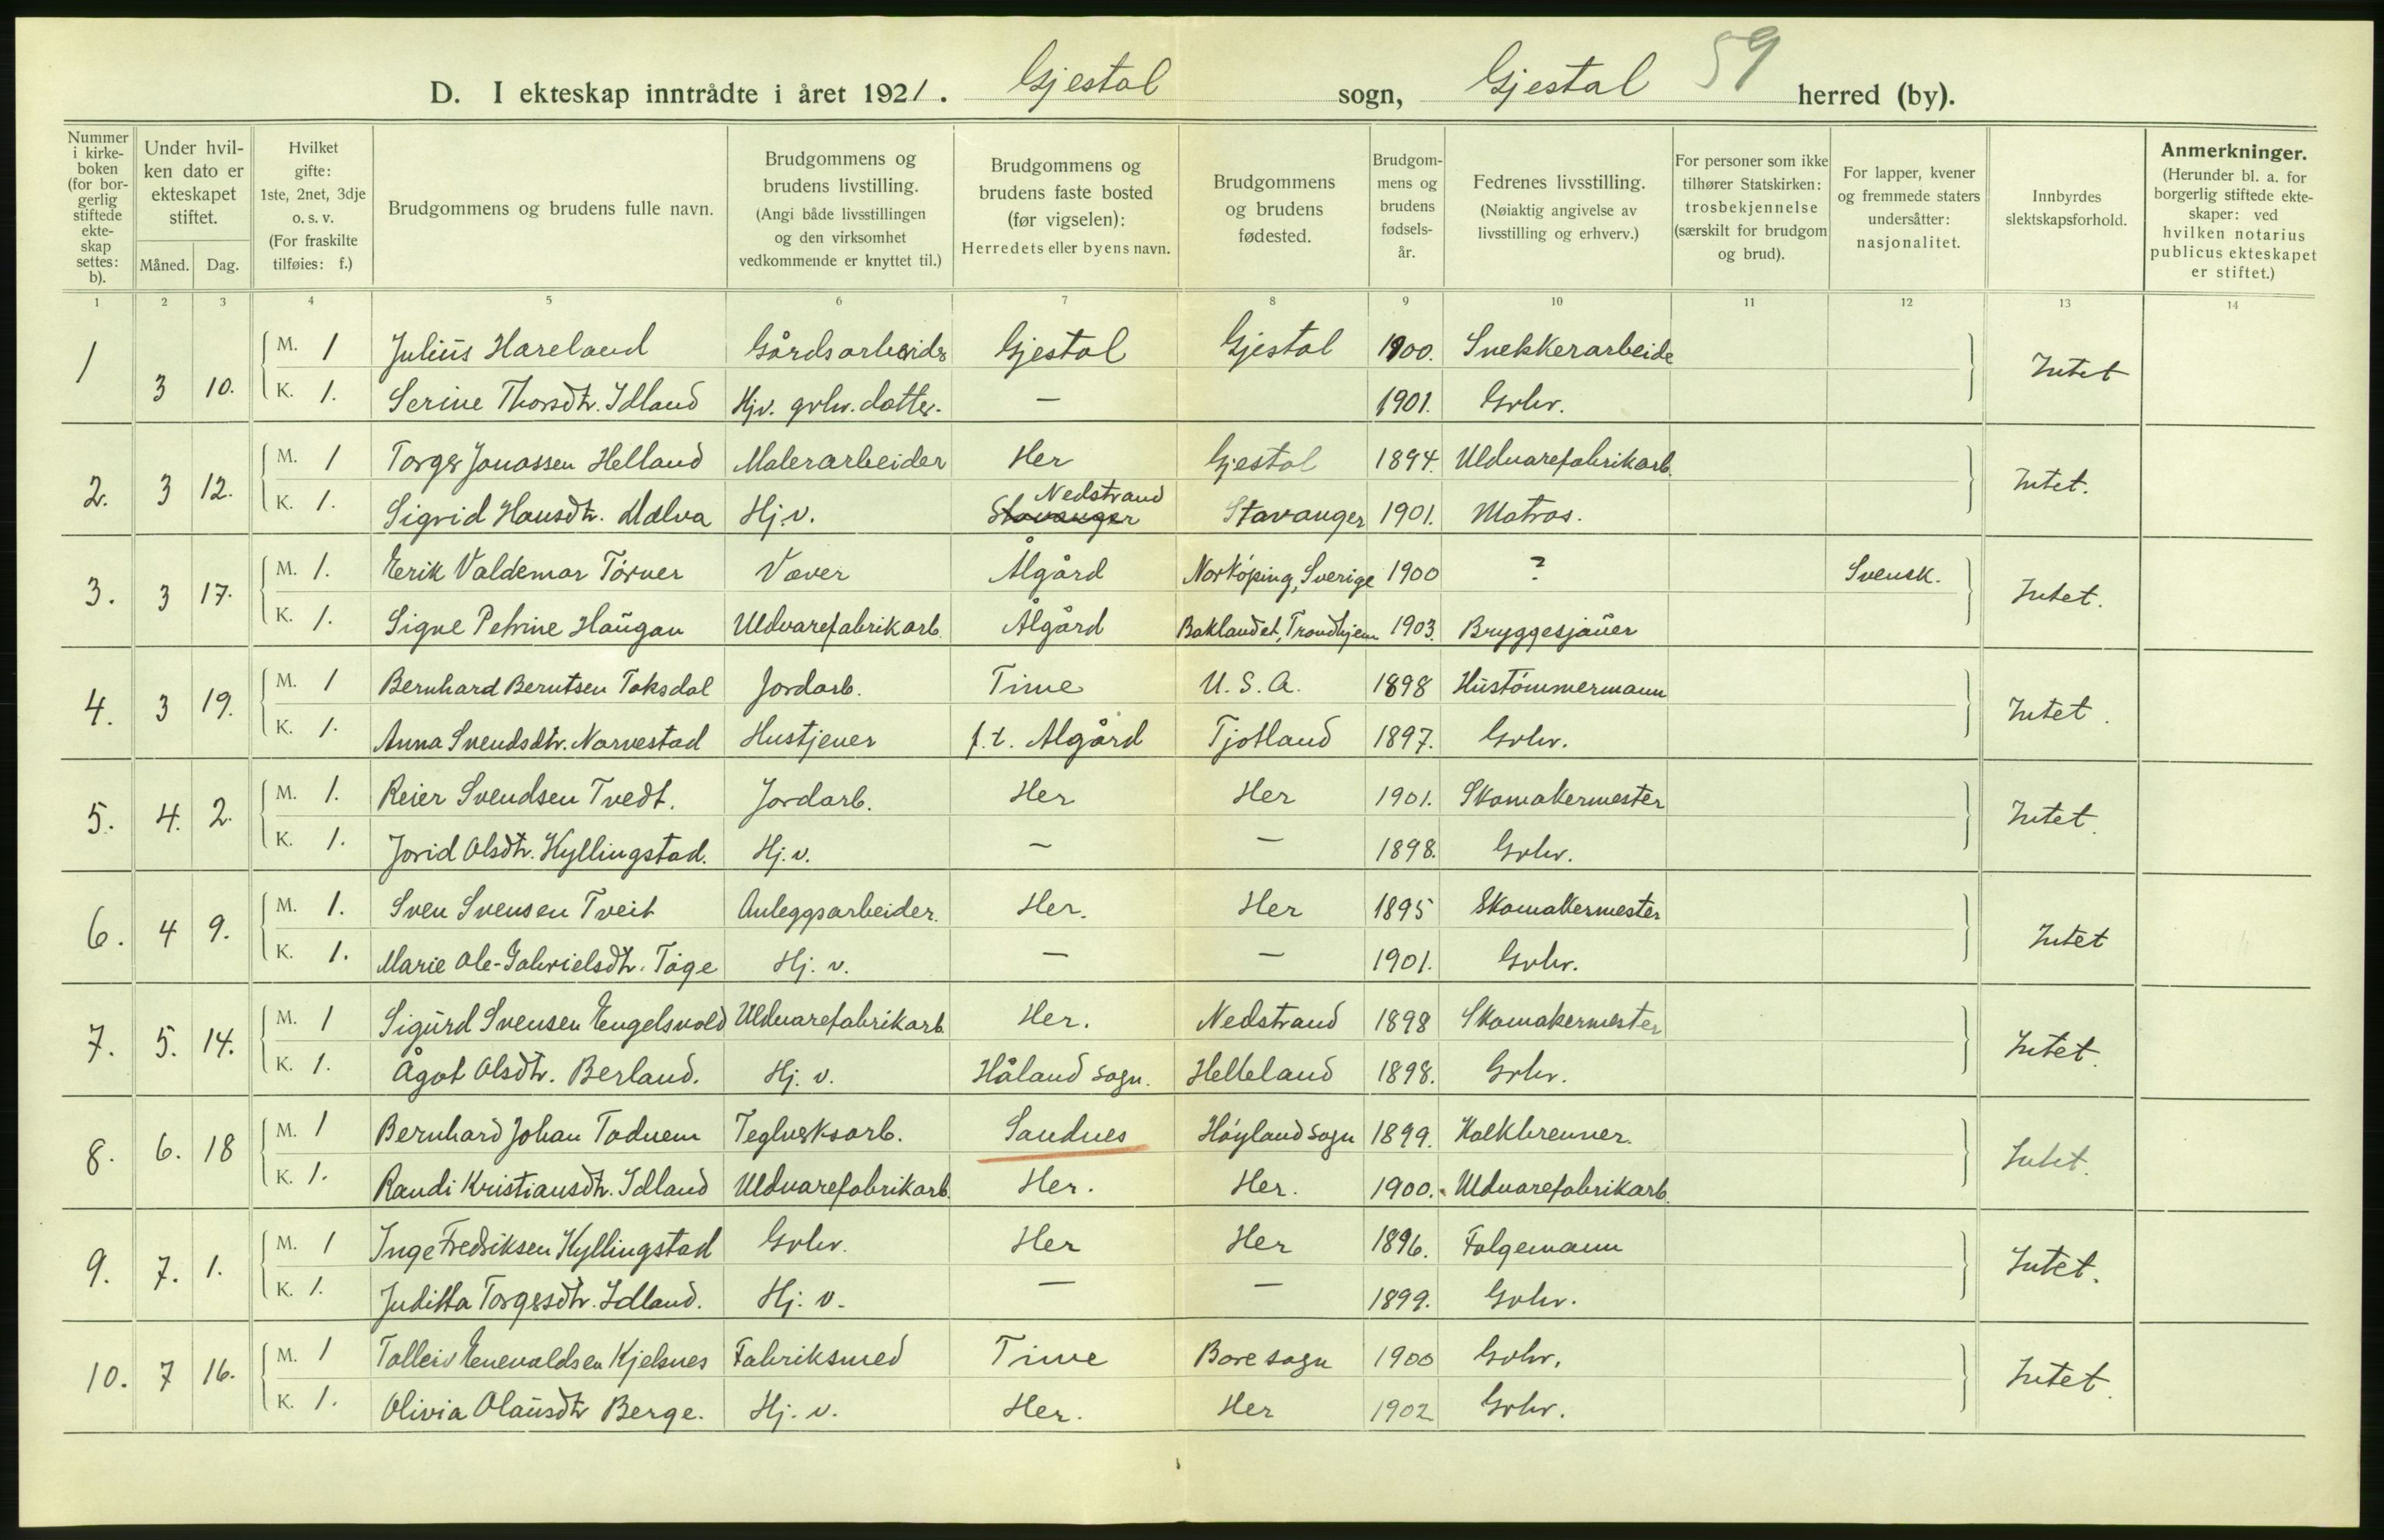 D. I ekteskap inntrådte i året 1921. Gjestal sogn, Gjestal 59 herred (by).
Nummer i kirkeboken (for borgerlig stiftede ekteskap settes: b).
Under hvilken dato er ekteskapet stiftet.
Måned. Dag.
Hvilket gifte: 1ste, 2net, 3dje o. s. v. (For fraskilte tilføies: f.)
Brudgommens og brudens fulle navn.
Brudgommens og brudens livstilling. (Angi både livsstillingen og den virksomhet vedkommende er knyttet til.)
Brudgommens og brudens faste bosted (før vigselen): Herredets eller byens navn.
Brudgommens og brudens fødested.
Brudgommens og brudens fødselsår.
Fedrenes livsstilling. (Nøiaktig angivelse av livsstilling og erhverv.)
For personer som ikke tilhører Statskirken: trosbekjennelse (særskilt for brudgom og brud).
For lapper, kvener og fremmede staters undersåtter: nasjonalitet.
Innbyrdes slektskapsforhold.
Anmerkninger. (Herunder bl. a. for borgerlig stiftede ekteskaper: ved hvilken notarius publicus ekteskapet er stiftet.)
1 2 3 4 5 6 7 8 9 10 11 12 13 14
1 3 10. M. 1 Julius Hareland Gårdsarbeider Gjestal Gjestal 1900. Snekkerarbeide Intet
K. 1. Serine Thorsdtr. Idland Hjv. grbr. datter. — 1901. Grbr.
2. 3 12. M. 1 Torger Jonassen Helland Malerarbeider Her Gjestal 1894. Uldvarefabrikarb. Intet.
K. 1. Sigrid Hansdtr. Mælva Hj.v. Stavanger Nedstrand Stavanger 1901. Matros.
3. 3 17. M. 1. Erik Valdemar Törner Væver Ålgård Norköping, Sverige 1900 ? Svensk. Intet.
K. 1. Signe Petrine Haugan Uldvarefabrikarb. Ålgård Baklandet, Trondhjem 1903. Bryggesjauer
4. 3 19. M. 1 Bernhard Berntsen Taksdal Jordarb. Time U. S. A. 1898 Hustømmermann Intet.
K. 1. Anna Svendsdtr. Norvestad Hustjener f.t. Ålgård Tjotland 1897. Grbr.
5. 4. 2. M. 1. Reier Svendsen Tvedt. Jordarb. Her Her 1901. Skomakermester Intet.
K. 1. Jorid Olsdtr. Kyllingstad. Hj.v. — — 1898. Grbr.
6. 4 9. M. 1. Sven Svensen Tveit Anleggsarbeider. Her. Her 1895 Skomakermester Intet
K. 1. Marie Ole-Gabrielsdtr. Tøge Hj. v. — — 1901. Grbr.
7. 5. 14. M. 1 Sigurd Svensen Engelsvold Uldvarefabrikarb. Her. Nedstrand 1898 Skomakermester Intet.
K. 1. Ågot Olsdtr. Berland. Hj. v. Håland sogn. Helleland 1898. Grbr.
8. 6. 18 M. 1 Bernhard Johan Tadnem Teglverksarb. Sandnes Høyland sogn 1899. Kalkbrenner. Intet.
K. 1. Randi Kristiansdtr. Idland Uldvarefabrikarb. Her. Her. 1900. Uldvarefabrikarb.
9. 7. 1. M. 1 Inge Fredriksen Kyllingstad Grbr. Her Her 1896. Følgemann Intet.
K. 1. Juditta Torgersdtr. Idland. Hj. v. — — 1899. Grbr.
10. 7 16. M. 1 Tolleiv Enevaldsen Kjelsnes Fabriksmed Time Bore sogn 1900 Grbr. Intet.
K. 1. Olivia Olausdtr Berge. Hj. v. Her. Her 1902 Grbr.